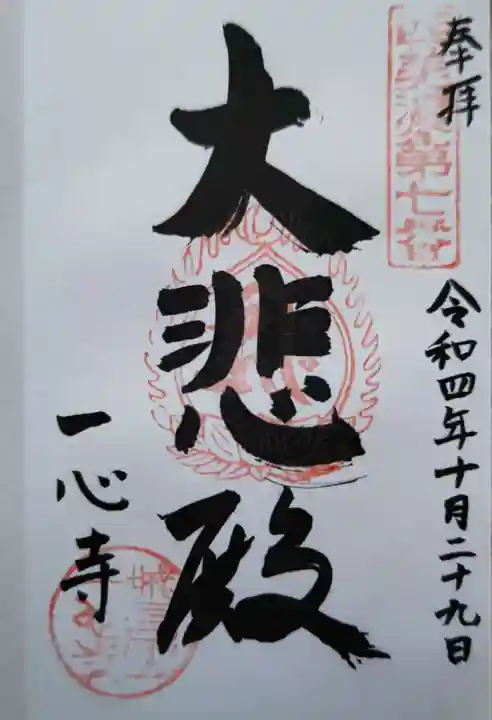 奉拝
第七番
令和四年十月二十九日
大悲殿
一心寺